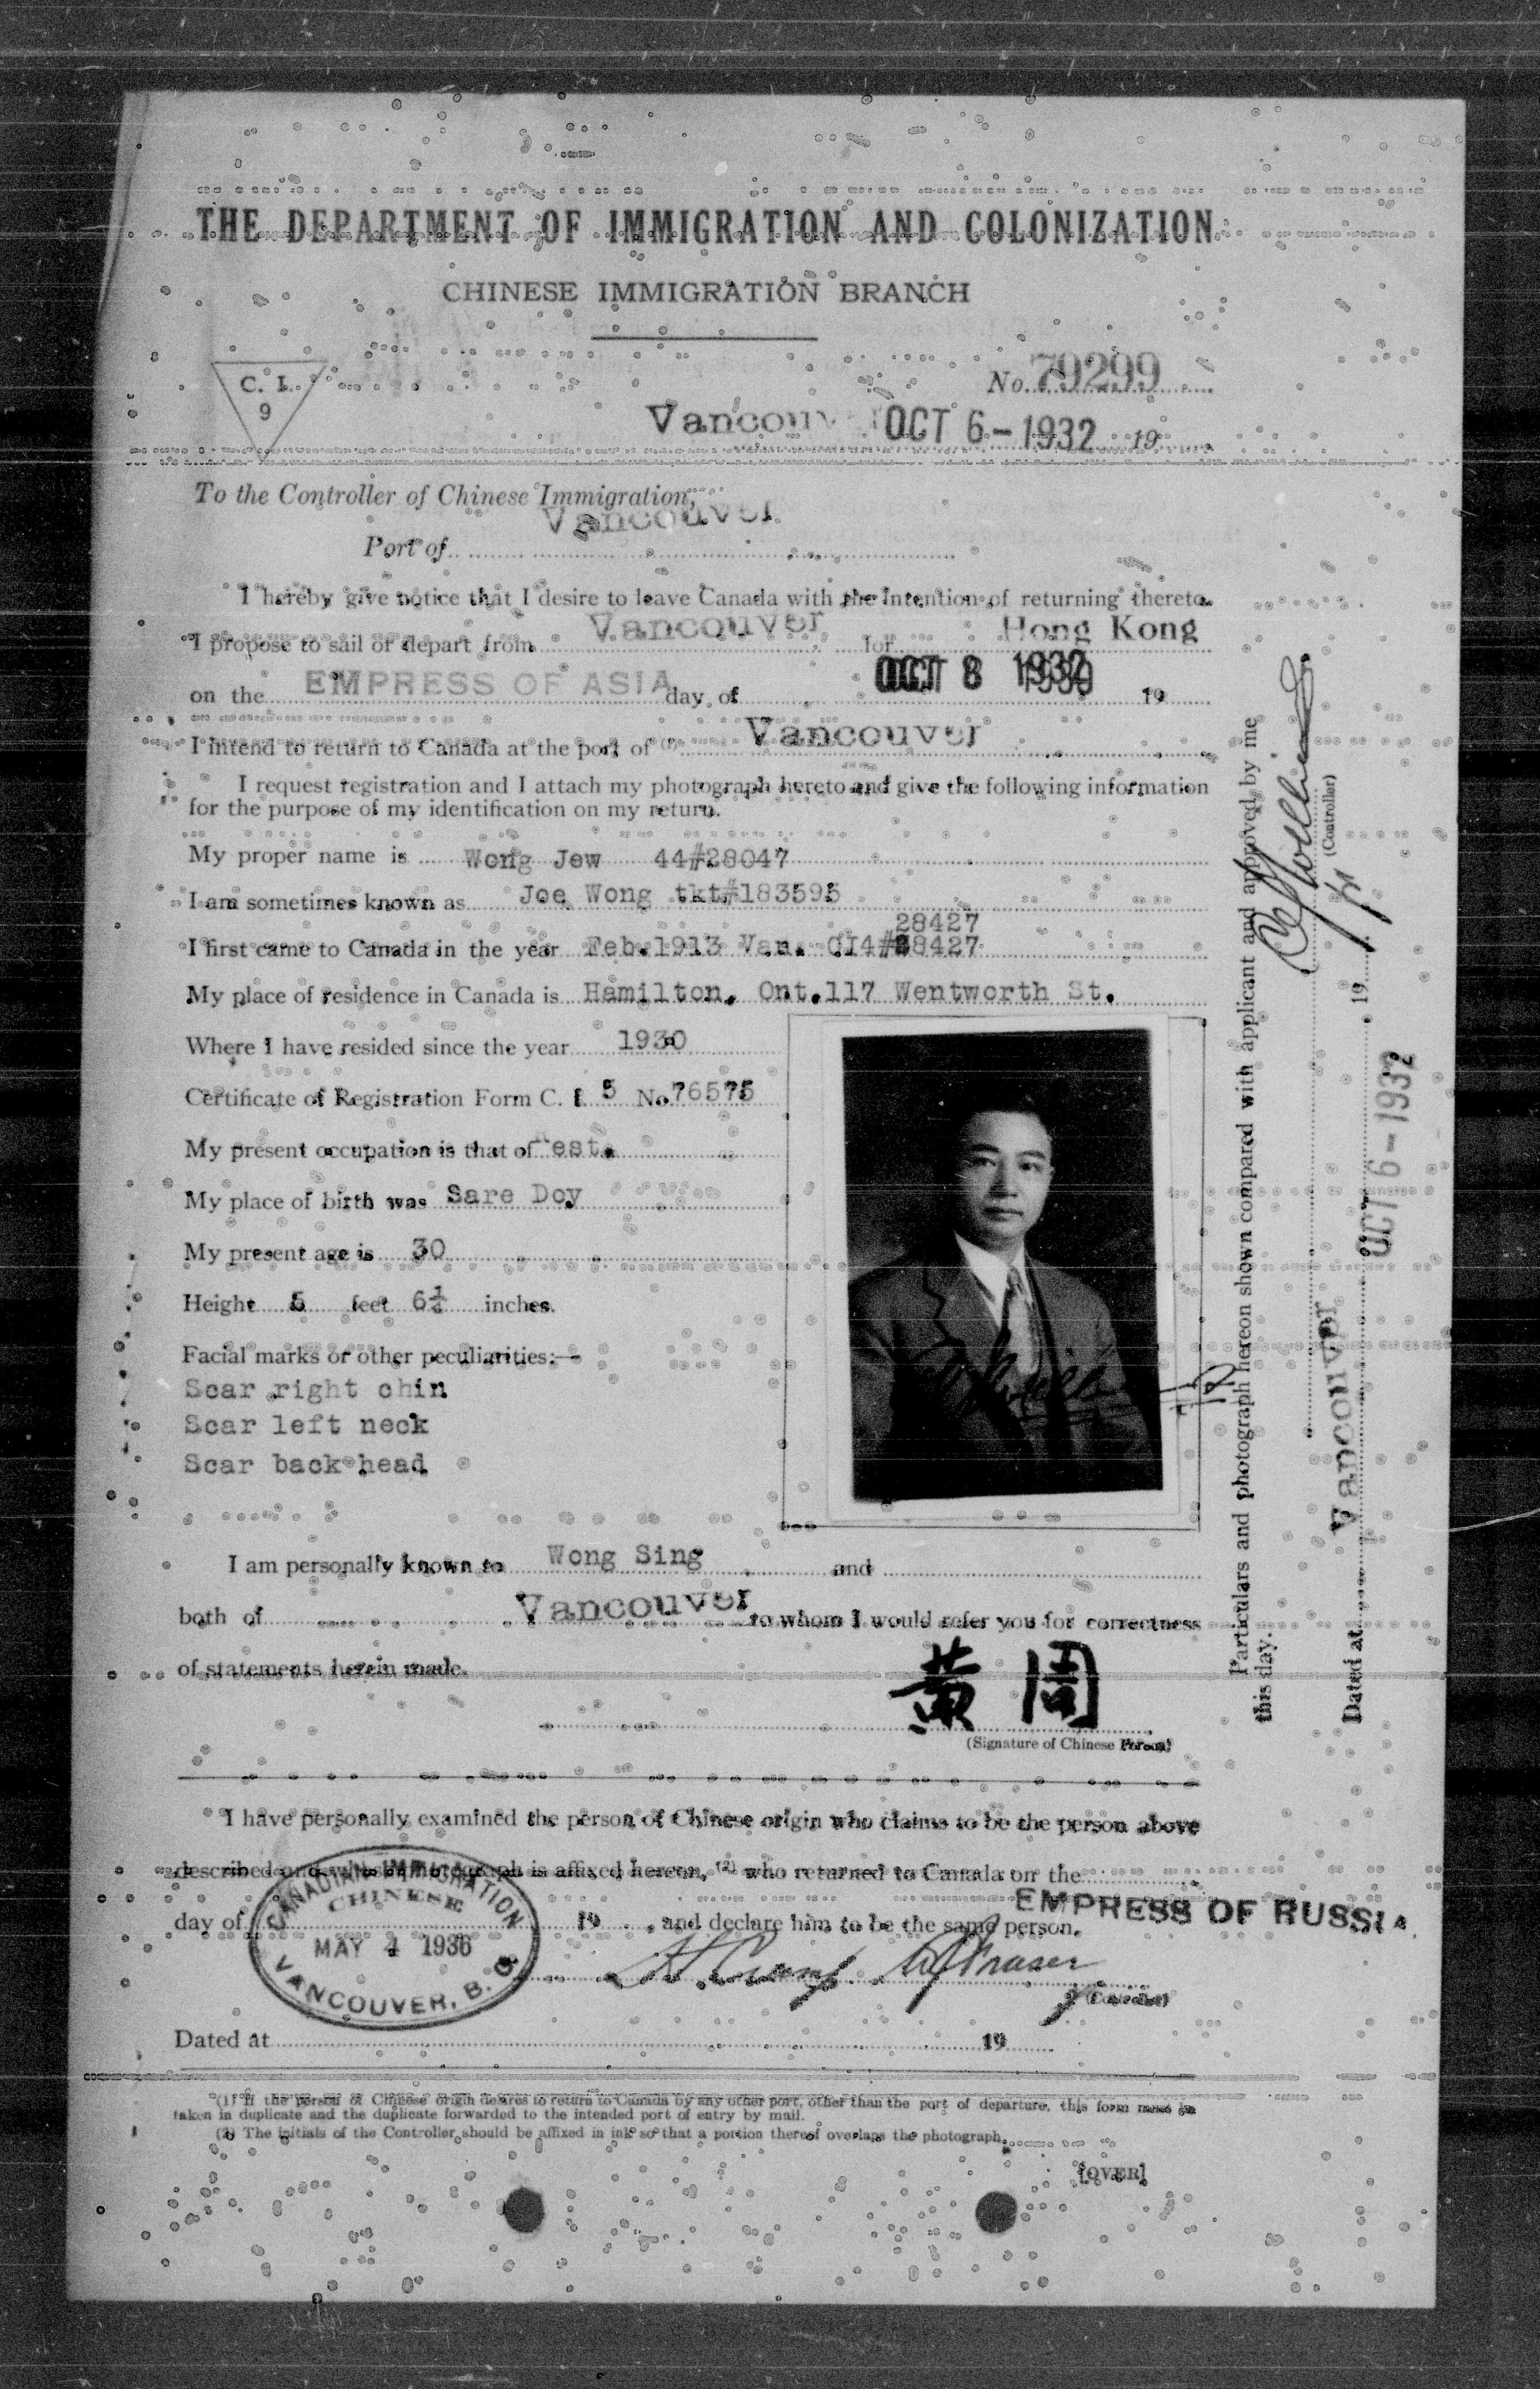 THE DEPARTMENT OF IMMIGRATION AND COLONIZATION
CHINESE IMMIGRATION BRANCH
C. I.
9
No. 79299
Vancouv OCT 6-1932 19
To the Controller of Chinese Immigration,
Vancouver
Port of
I hereby give notice that I desire to leave Canada with the Intention of returning thereto.
I propose to sail or depart from Vancouver for Hong Kong
on the EMPRESS OF ASIA day of OCT 8 1932 19
I intend to return to Canada at the port of (1) Vancouver
I request registration and I attach my photograph hereto and give the following information
for the purpose of my identification on my return.
My proper name is Wong Jew 44#28047
I am sometimes known as Joe Wong tkt#183595
28427
I first came to Canada in the year Feb.1913 Van. CI4#28427
My place of residence in Canada is Hamilton, Ont.117 Wentworth St.
Where I have resided since the year 1930
Certificate of Registration Form C. I. 5 No. 76575
My present occupation is that of Rest.
My place of birth was Sare Doy
My present age is 30
Height 5 feet 6¼ inches.
Facial marks or other peculiarities:—
Scar right chin
Scar left neck
Scar back head
I am personally known to Wong Sing and
both of Vancouver to whom I would refer you for correctness
of statements herein made.
黃周
(Signature of Chinese Person)
I have personally examined the person of Chinese origin who claims to be the person above
described and whose photograph is affixed hereon, (2) who returned to Canada on the
EMPRESS OF RUSSIA
day of 19 , and declare him to be the same person.
CANADIAN IMMIGRATION
CHINESE
MAY 4 1936
VANCOUVER, B. C.
Fraser
(Controller)
Dated at 19
(1) If the person of Chinese origin desires to return to Canada by any other port, other than the port of departure, this form must be
taken in duplicate and the duplicate forwarded to the intended port of entry by mail.
(2) The initials of the Controller should be affixed in ink so that a portion thereof overlaps the photograph.
[OVER]
Particulars and photograph hereon shown compared with applicant and approved by me
this day.
(Controller)
Dated at Vancouver OCT 6-1932 , 19